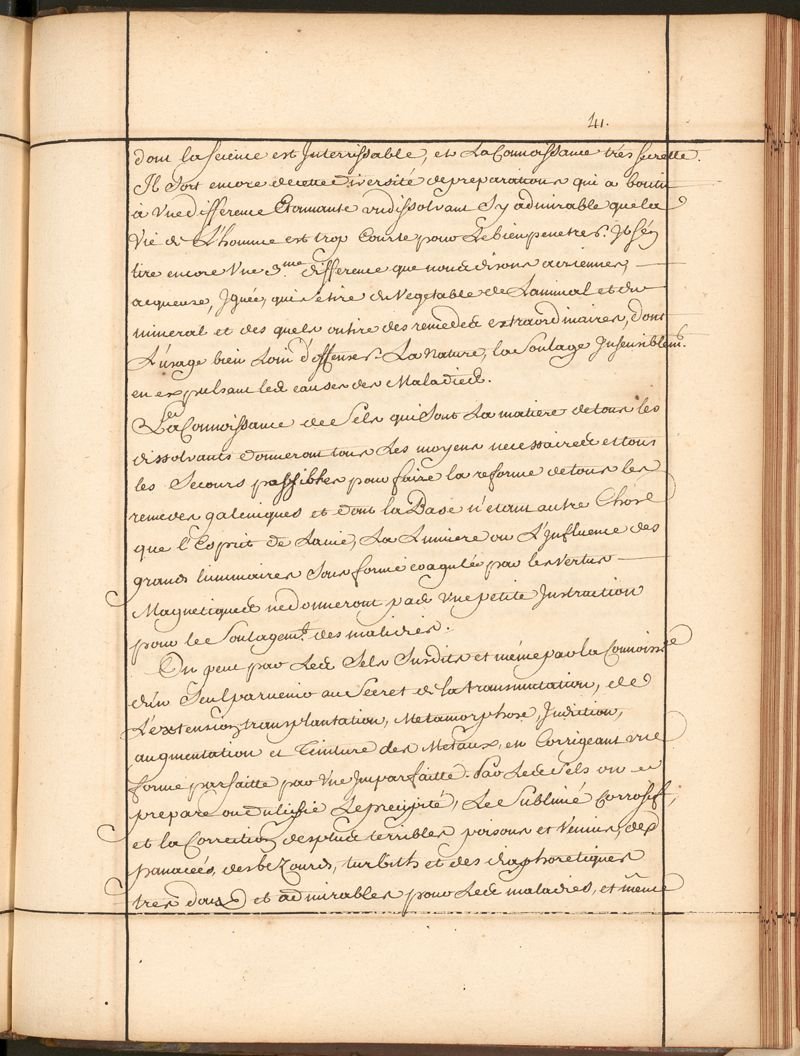 41.
dont la science est Interrissable, et La Connoissance trés secrette.
Il sort encore de cette diversité de preparations qui a boutit
à Vne difference Etonnante un dissolvant sy admirable que la
Vie de L'homme est trop Courte pour Le bien penetrer. Il s'en
tire encore Vne 3.me difference que nous disons aeriennes,
acqueuse, Ignée, qui se tire du Vegetable de Lanimal et du
mineral et des quels on tire des remedes extraordinaires, dont
L'usage bien Loin d'offenser La Nature, la Soulage Insensiblem.t
en expulsant les causes des Maladies.
La Connoissance des Sels qui sont La matiere de tous les
dissolvants donneront tous Les moyens necessaires et tous
les Secours possibles pour faire la reforme de tous les
remedes galeniques et dont la Base n'etant autre Chose
que l'Esprit de La vie, La Lumiere ou L'Influence des
grands luminaires sous forme coagulée par les vertus
Magnetiques ne donneront pas Vne petite Instruction
pour le Soulagem.t des maladies.
On peut par Les Sels Susdits et méme par la Connoiss.ce
d'un Seul parvenir au Secret de la transmutation, de
L'extension, transplantation, Metamorphose,
augmentation et Teinture des Metaux, en Corrigeant une
forme parfaitte par Vne Imparfaitte. Par Les Sels on
prepare ou dulcifie Le precipité, Le Sublimé Corrosif,
et la Correction des plus terribles poisons et Venins, des
panacées, des bezoards, turbith et des diaphoretiques
tres doux et admirables pour Les maladies, et méme